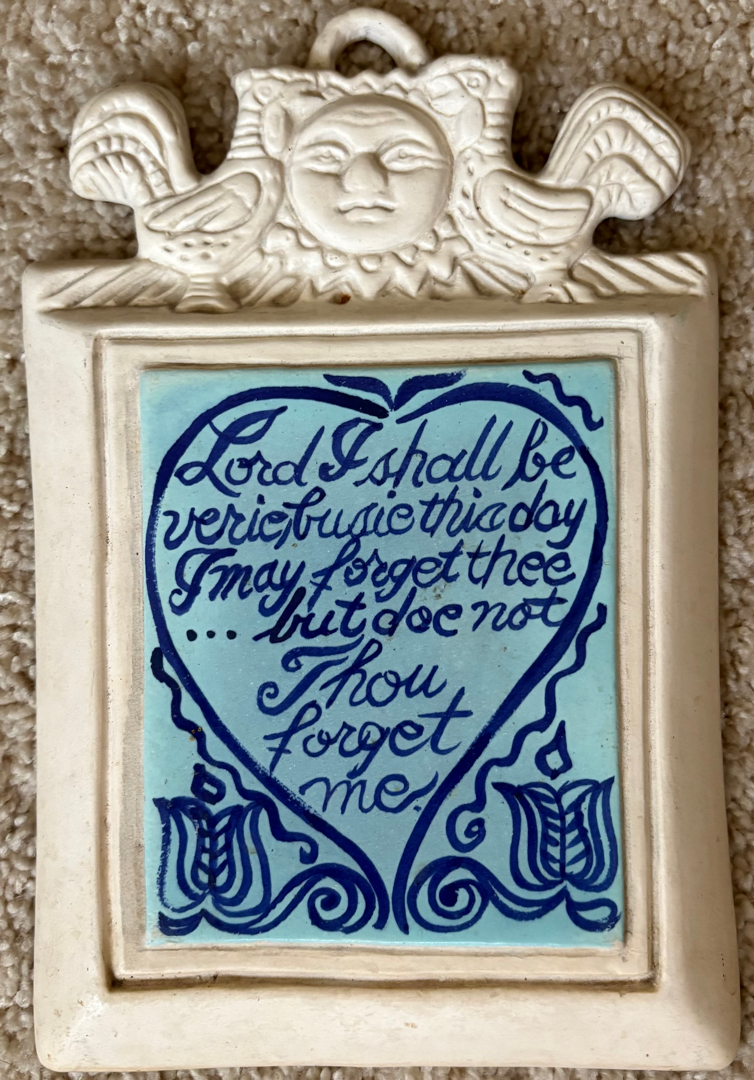 Lord I shall be
verie, busie this day
I may forget thee
... but doe not
Thou
forget
me.